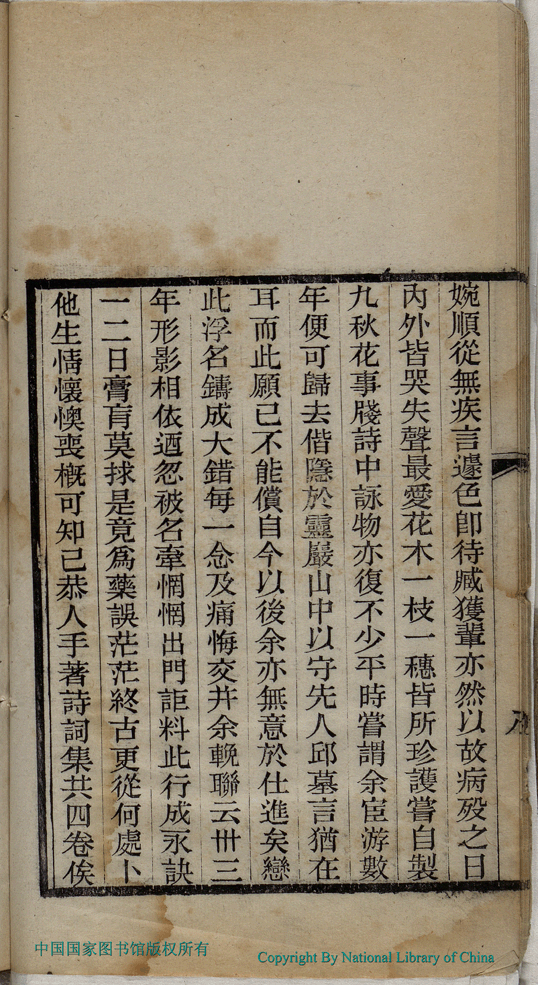 婉順從無疾言遽色卽待臧獲輩亦然以故病歿之日
內外皆哭失聲最愛花木一枝一穗皆所珍護嘗自製
九秋花事牋詩中詠物亦復不少平時嘗謂余宦游數
年便可歸去偕隱於靈巖山中以守先人邱墓言猶在
耳而此願已不能償自今以後余亦無意於仕進矣戀
此浮名鑄成大錯每一念及痛悔交幷余輓聯云卅三
年形影相依迺忽被名牽惘惘出門詎料此行成永訣
一二日膏肓莫捄是竟爲藥誤茫茫終古更從何處卜
他生情懷懊喪槪可知已恭人手著詩詞集共四卷俟
中国国家图书馆版权所有
Copyright By National Library of China